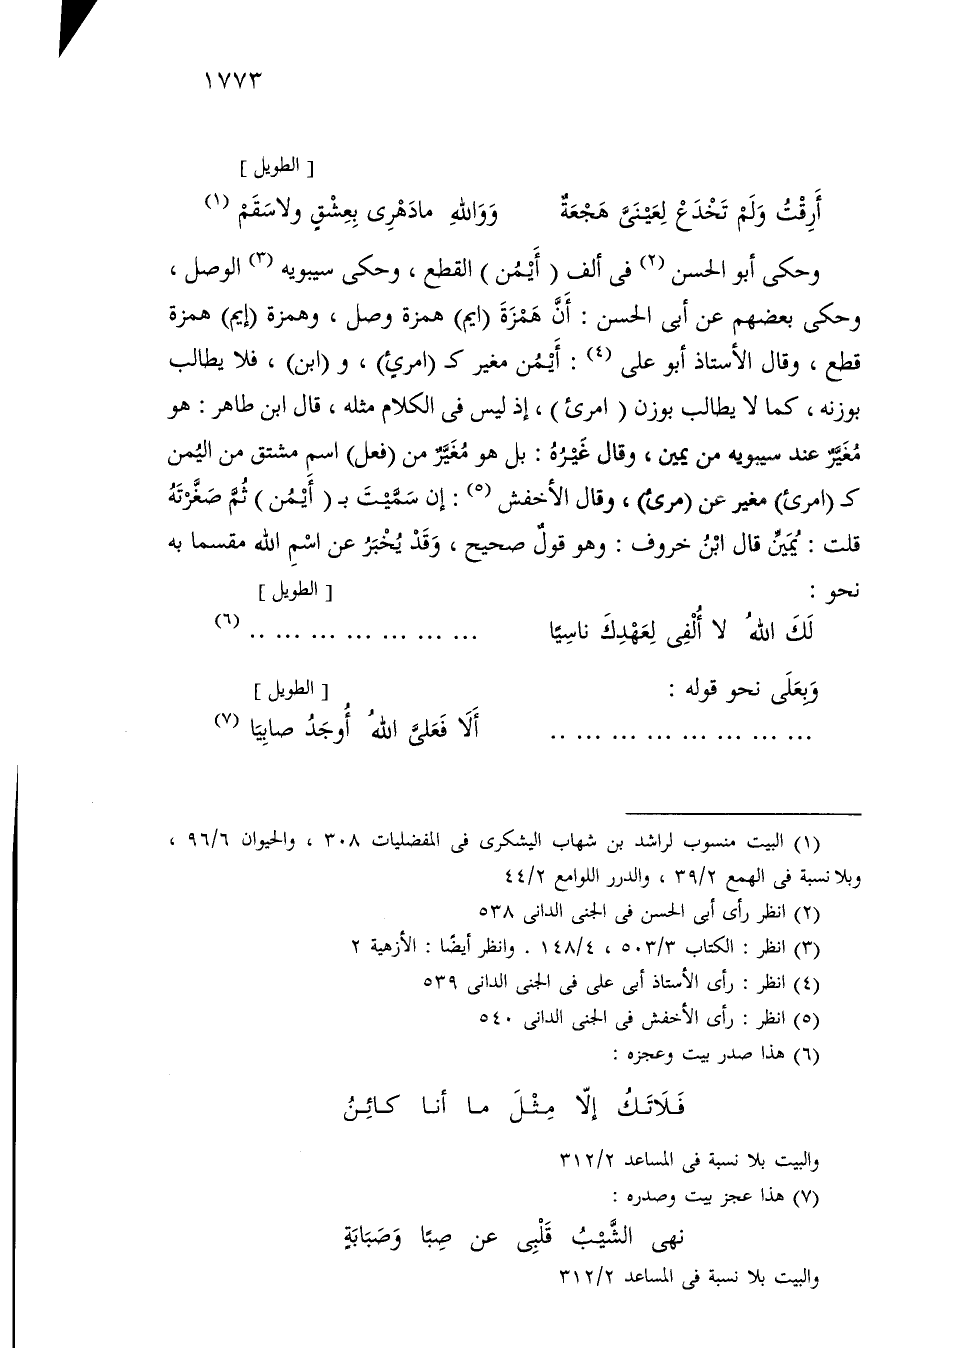 ١٧٧٣
[ الطويل ]
أَرِقْتُ وَلَمْ تَخْدَعْ لِعَيْنَىَّ هَجْعَةٌ وَوَاللهِ مادَهْرِى بِعِشْقٍ ولاسَقَمْ (١)
وحكى أبو الحسن (٢) فى ألف ( أَيْمُن ) القطع ، وحكى سيبويه (٣) الوصل ،
وحكى بعضهم عن أبى الحسن : أَنَّ هَمْزَةَ (ايم) همزة وصل ، وهمزة (إيم) همزة
قطع ، وقال الأستاذ أبو على (٤) : أَيْمُن مغير كـ (امرئ) ، و (ابن) ، فلا يطالب
بوزنه ، كما لا يطالب بوزن ( امرئ ) ، إذ ليس فى الكلام مثله ، قال ابن طاهر : هو
مُغَيَّرٌ عند سيبويه من يمين ، وقال غَيْرُهُ : بل هو مُغَيَّرٌ من (فعل) اسم مشتق من اليُمن
كـ (امرئ) مغير عن (مرئ) ، وقال الأخفش (٥) : إن سَمَّيْتَ بـ ( أَيْمُن ) ثُمَّ صَغَّرْتَهُ
قلت : يُمَينٌ قال ابْنُ خروف : وهو قولٌ صحيح ، وَقَدْ يُخْبَرُ عن اسْمِ الله مقسما به
نحو : [ الطويل ]
لَكَ اللهُ لا أُلْفِى لِعَهْدِكَ ناسِيًا ... ... ... ... ... ... .. (٦)
وَبِعَلَى نحو قوله : [ الطويل ]
... ... ... ... ... ... ... .. أَلَا فَعَلىَّ اللهُ أُوجَدُ صابِيَا (٧)
(١) البيت منسوب لراشد بن شهاب اليشكرى فى المفضليات ٣٠٨ ، والحيوان ٩٦/٦ ،
وبلا نسبة فى الهمع ٣٩/٢ ، والدرر اللوامع ٤٤/٢
(٢) انظر رأى أبى الحسن فى الجنى الدانى ٥٣٨
(٣) انظر : الكتاب ٥٠٣/٣ ، ١٤٨/٤ . وانظر أيضًا : الأزهية ٢
(٤) انظر : رأى الأستاذ أبى على فى الجنى الدانى ٥٣٩
(٥) انظر : رأى الأخفش فى الجنى الدانى ٥٤٠
(٦) هذا صدر بيت وعجزه :
فَلَاتَكُ إلّا مِثْلَ ما أنا كائِنُ
والبيت بلا نسبة فى المساعد ٣١٢/٢
(٧) هذا عجز بيت وصدره :
نهى الشَّيْبُ قَلْبِى عن صِبًا وَصَبَابَةٍ
والبيت بلا نسبة فى المساعد ٣١٢/٢